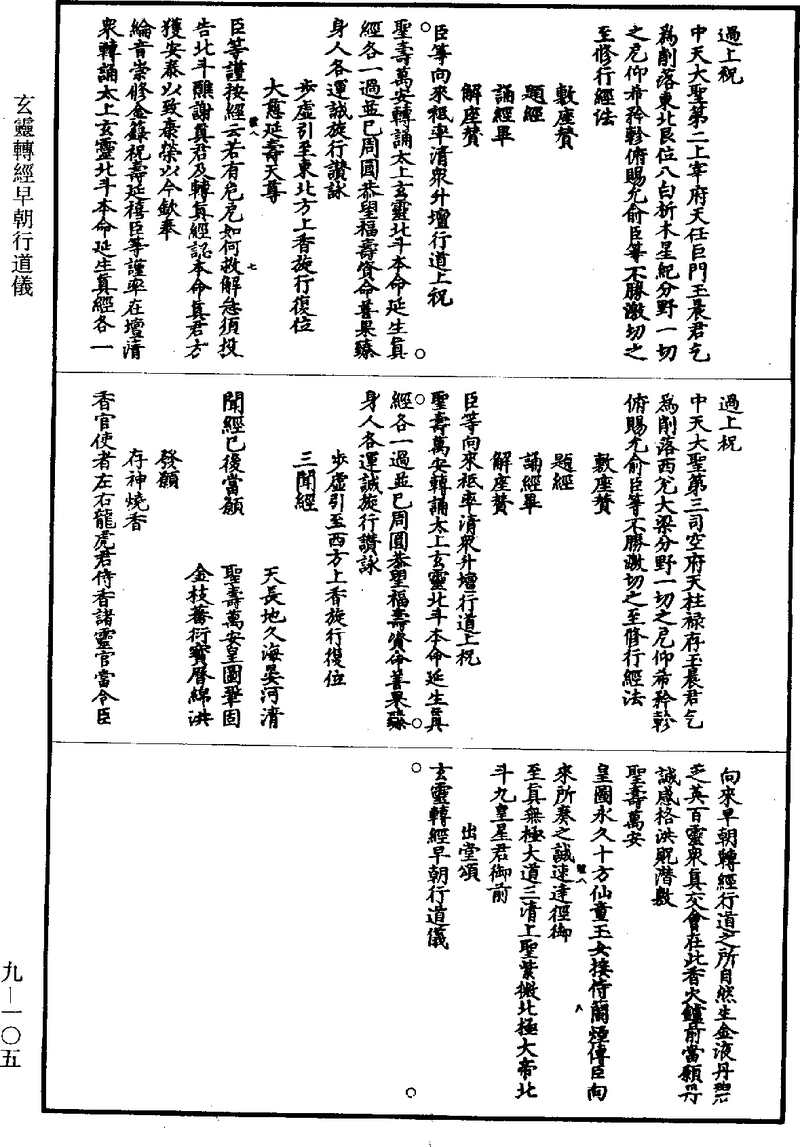 過上祝
中天大聖第二上宰府天任巨門玉晨君乞
爲削落東北艮位八白析木星紀分野一切
之厄仰希矜軫俯賜允俞臣等不勝激切之
至修行經法
敷座贊
題經
誦經畢
解座贊
臣等向來祗率清衆升壇行道上祝
聖壽萬安轉誦太上玄靈北斗本命延生眞
經各一過並已周圓恭望福壽資命善果臻
身人各運誠旋行讚詠
步虛引至東北方上香旋行復位
大慈延壽天尊
臣等謹按經云若有危厄如何救解急須投
告北斗醮謝眞君及轉眞經認本命眞君方
獲安泰以致康榮以今欽奉
綸音崇修金籙祝壽延禧臣等謹率在壇清
衆轉誦太上玄靈北斗本命延生眞經各一
過上祝
中天大聖第三司空府天柱祿存玉晨君乞
爲削落西兌大梁分野一切之厄仰希矜軫
俯賜允俞臣等不勝激切之至修行經法
敷座贊
題經
誦經畢
解座贊
臣等向來祗率清衆升壇行道上祝
聖壽萬安轉誦太上玄靈北斗本命延生眞
經各一過並已周圓恭望福壽資命善果臻
身人各運誠旋行讚詠
步虛引至西方上香旋行復位
三聞經
天長地久海晏河清
聞經已後當願　聖壽萬安皇圖鞏固
金枝蕃衍寶曆綿洪
發願
存神燒香
香官使者左右龍虎君侍香諸靈官當令臣
向來早朝轉經行道之所自然生金液丹碧
芝英百靈衆眞交會在此香火鑪前當願丹
誠感格洪貺潛敷
聖壽萬安
皇圖永久十方仙童玉女接侍蘭煙傳臣向
來所奏之誠速達徑御
至眞無極大道三清上聖紫微北極大帝北
斗九皇星君御前
出堂頌
玄靈轉經早朝行道儀
玄靈轉經早朝行道儀
九—一〇五